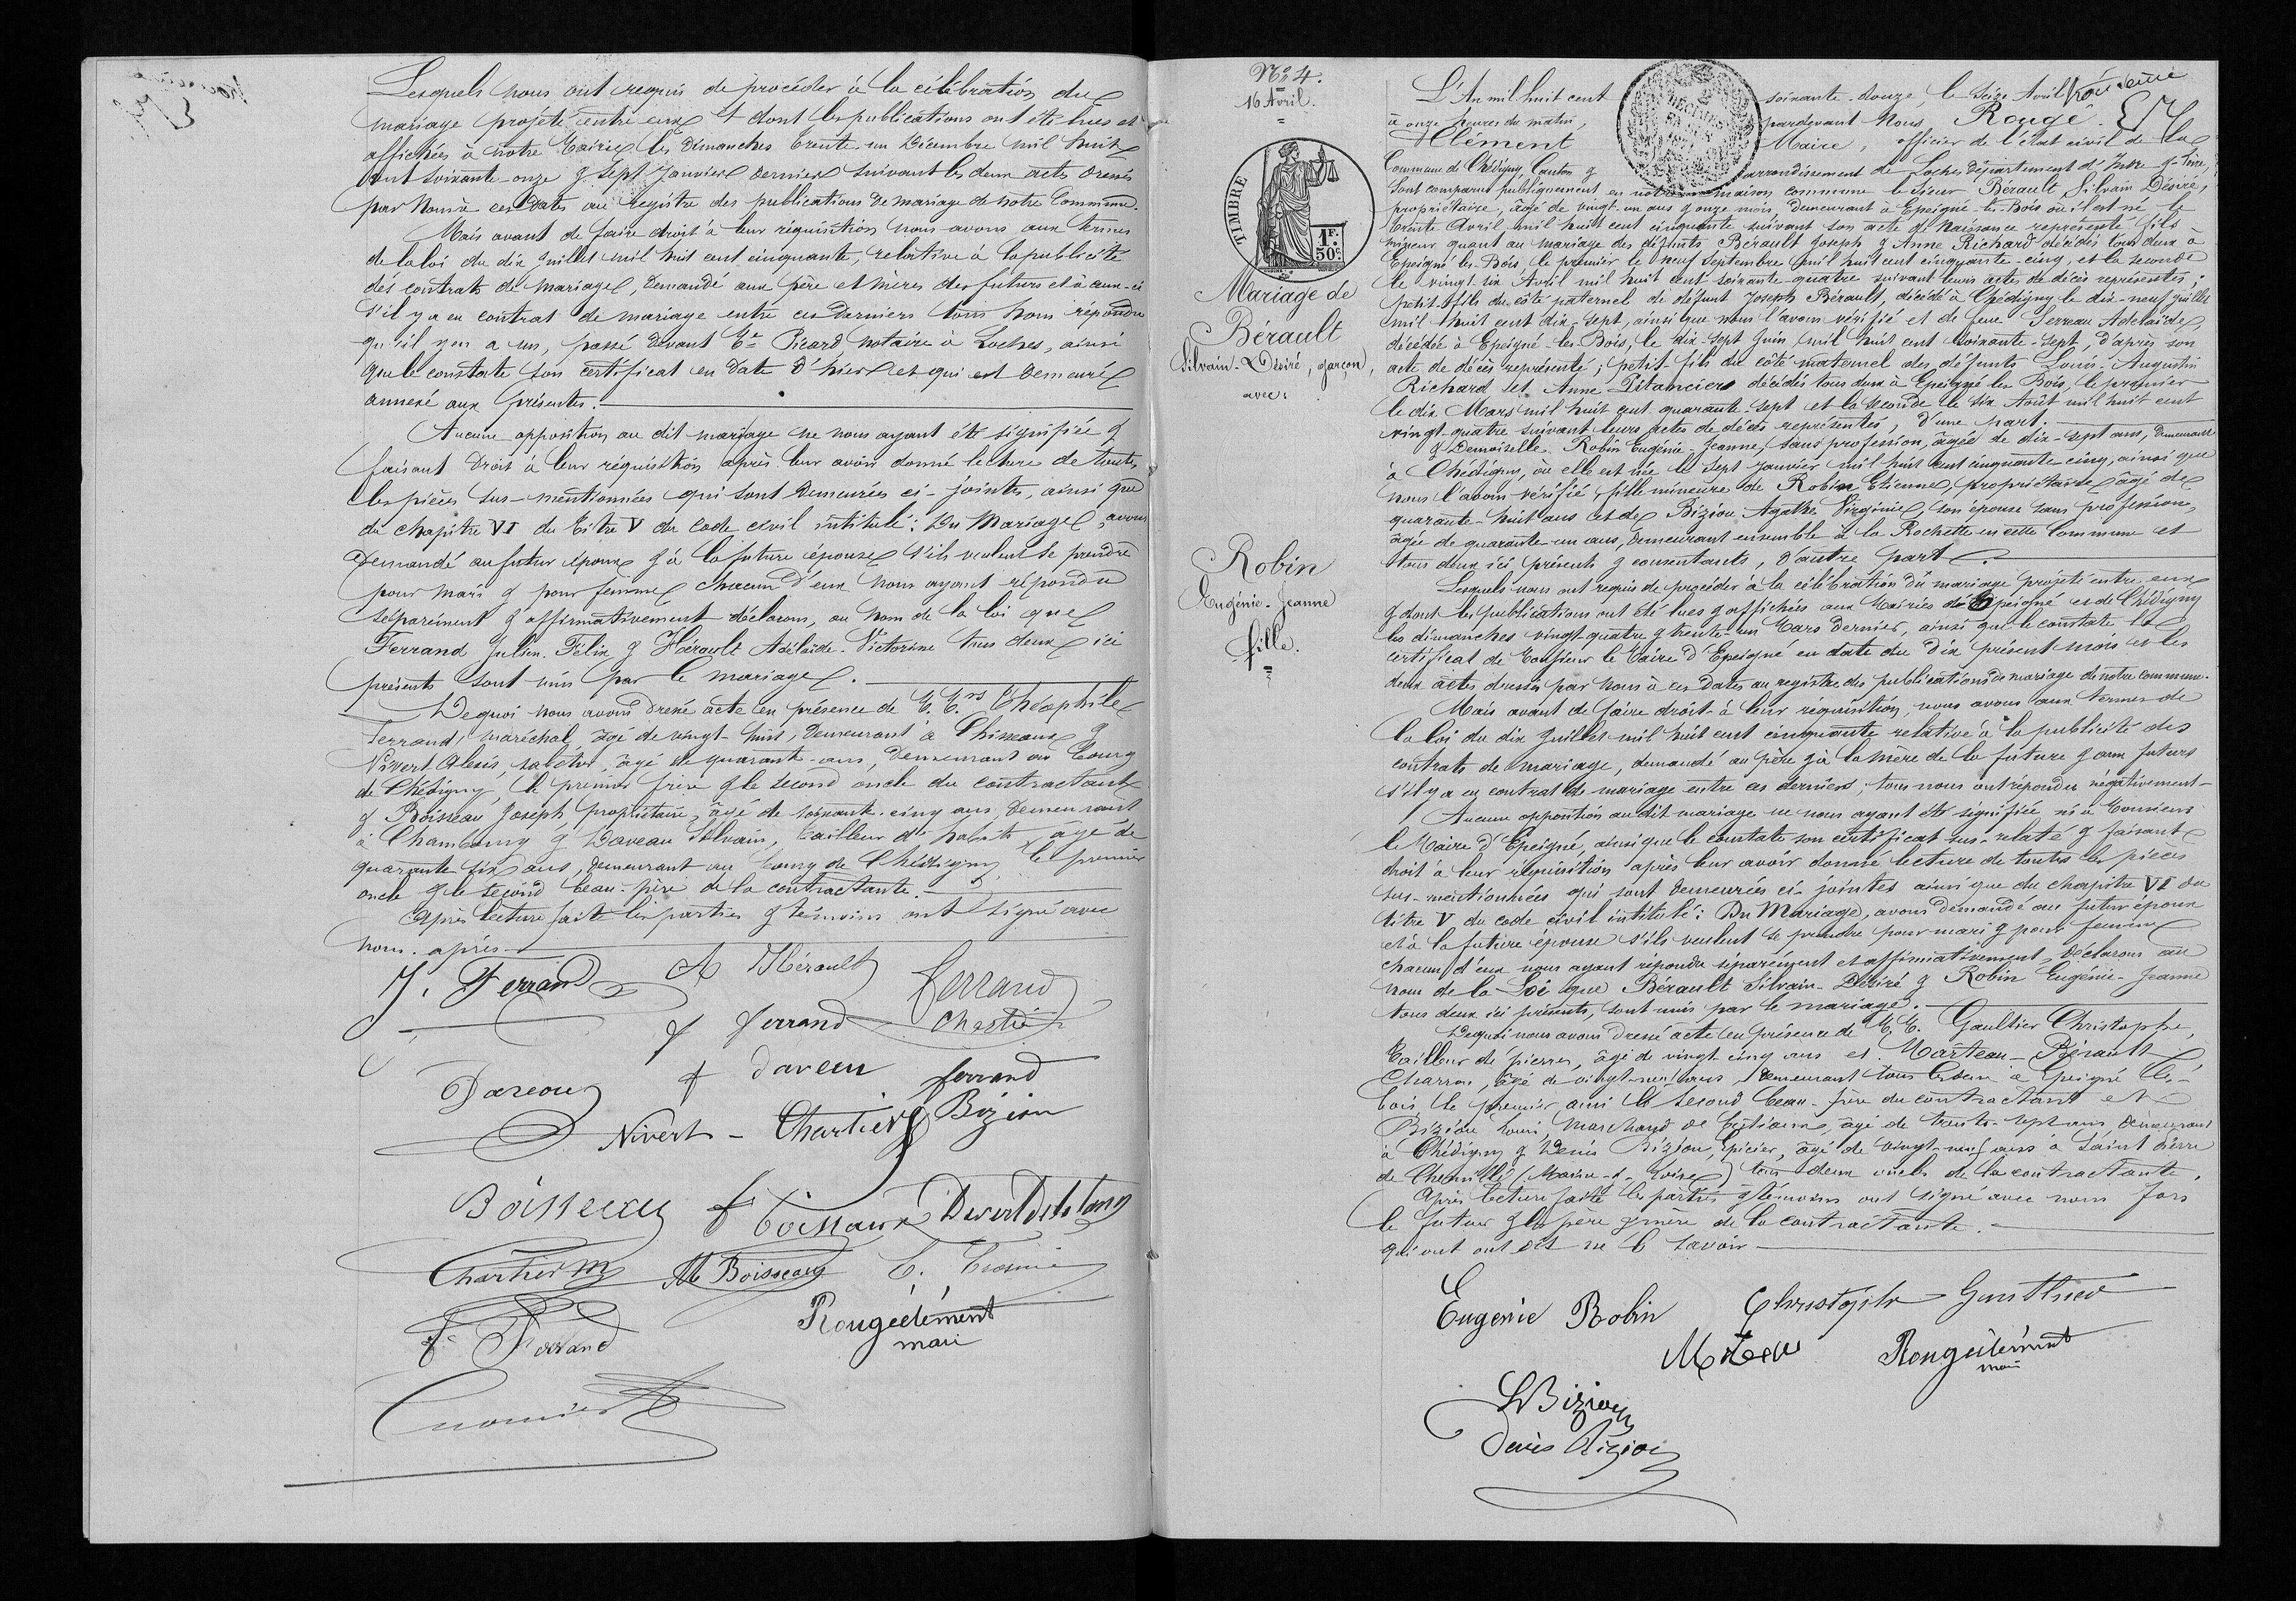 Lesquels nous ont requis de procéder à la célébration du
mariage projeté entre eux & dont les publications ont été lues et
affichées à notre Mairie les dimanches trente-un Décembre mil huit
cent soixante-onze & sept Janvier dernier suivant les deux actes dressés
par nous à ces dates au registre des publications de mariage de notre Commune.
Mais avant de faire droit à leur réquisition nous avons aux termes
de la loi du dix Juillet mil huit cent cinquante, relative à la publicité
des contrats de mariage, demandé aux père et mères des futurs et à ceux-ci
s'il y a eu contrat de mariage entre ces derniers tous nous répondu
qu'il y en a un, passé devant Me Picard, notaire à Loches, ainsi
que le constate son certificat en date d'hier et qui est demeuré
annexé aux présentes.
Aucune opposition au dit mariage ne nous ayant été signifiée &
faisant droit à leur réquisition après leur avoir donné lecture de toutes
les pièces sus-mentionnées qui sont demeurées ci-jointes, ainsi que
du chapitre VI du titre V du code civil intitulé: Du Mariage, avons
demandé au futur époux & à la future épouse s'ils veulent se prendre
pour mari & pour femme chacun d'eux nous ayant répondu
séparément & affirmativement déclarons, au nom de la loi que
Ferrand Julien-Félix & Hérault Adélaïde-Victorine tous deux ici
présents sont unis par le mariage.
De quoi nous avons dressé acte en présence de M.Mrs Théophile
Ferrand, maréchal, âgé de vingt-huit, demeurant à Chisseaux &
Nivert Alexis, sabotier, âgé de quarante-ans, demeurant au bourg
de Chédigny, le premier frère & le second oncle du contractant
& Boisseau Joseph, propriétaire, âgé de soixante-cinq ans, demeurant
à Chambourg & Daveau Silvain, tailleur d'habits, âgé de
quarante-six ans, demeurant au bourg de Chédigny, le premier
oncle & le second beau-père de la contractante.
Après lecture faite les parties & témoins ont signé avec
nous. après
J. Ferrand A Hérault Ferrand
f ferrand Chartié
Daveau f daveau ferrand
Nivert - Chartier Bizion
Boisseau f Boissaux
Chartier M Boisseau
Rougé clément
maire
f. Ferrand
No 4.
16 Avril.
TIMBRE
1F.
50c.
Mariage de
Bérault
Silvain-Désiré, garçon,
avec:
Robin
Eugénie-Jeanne
fille.
L'An mil huit cent soixante-douze, le seize Avril
à onze heures du matin, pardevant Nous, Rougé
Clément Maire, officier de l'état civil de la
Commune de Chédigny, Canton & arrondissement de Loches, département d'Indre-&-Loire,
Sont comparus publiquement en notre maison commune le Sieur Bérault Silvain Désiré,
propriétaire, âgé de vingt-un ans & onze mois, demeurant à Epeigné-les-Bois où il est né le
trente Avril mil huit cent cinquante suivant son acte de naissance représenté fils
mineur quant au mariage des défunts Bérault Joseph & Anne Richard décédés tous deux à
Epeigné-les-Bois, le premier le neuf Septembre mil huit cent cinquante-cinq, et la seconde
le vingt-six Avril mil huit cent soixante-quatre suivant leurs actes de décès représentés;
petit-fils du côté paternel de défunt Joseph Bérault, décédé à Chédigny le dix-neuf Juillet
mil huit cent dix-sept, ainsi que nous l'avons vérifié et de feue Serreau Adélaïde,
décédée à Epeigné-les-Bois, le dix-sept Juin mil huit cent soixante-sept, d'après son
acte de décès représenté; petit-fils du côté maternel des défunts Louis-Augustin
Richard et Anne Pitancier décédés tous deux à Epeigné-les-Bois, le premier
le dix Mars mil huit cent quarante-sept et la seconde le six Août mil huit cent
vingt-quatre suivant leurs actes de décès représentés, d'une part.
& Demoiselle Robin Eugénie-Jeanne, sans profession, âgée de dix-sept ans, demeurant
à Chédigny, où elle est née le sept Janvier mil huit cent cinquante-cinq, ainsi que
nous l'avons vérifié, fille mineure de Robin Etienne, propriétaire âgé de
quarante-huit ans et de Bizion Agathe Virginie, son épouse sans profession,
âgée de quarante-un ans, demeurant ensemble à la Rochette en cette Commune et
tous deux ici présents & consentants, d'autre part.
Lesquels nous ont requis de procéder à la célébration du mariage projeté entre eux
& dont les publications ont été lues & affichées aux Mairies d'Epeigné et de Chédigny
les dimanches vingt-quatre & trente-un Mars dernier, ainsi que le constate le
certificat de Monsieur le Maire d'Epeigné en date du dix présent mois et les
deux actes dressés par nous à ces dates au registre des publications de mariage de notre commune.
Mais avant de faire droit à leur réquisition, nous avons aux termes de
la loi du dix Juillet mil huit cent cinquante relative à la publicité des
contrats de mariage, demandé au père & à la mère de la future & aux futurs
s'il y a eu contrat de mariage entre ces derniers, tous nous ont répondu négativement
Aucune opposition au dit mariage ne nous ayant été signifiée ni à Monsieur
le Maire d'Epeigné, ainsi que le constate son certificat sus-relaté & faisant
droit à leur réquisition après leur avoir donné lecture de toutes les pièces
sus-mentionnées qui sont demeurées ci-jointes ainsi que du chapitre VI du
titre V du code civil intitulé: Du Mariage, avons demandé au futur époux
et à la future épouse s'ils veulent se prendre pour mari & pour femme
chacun d'eux nous ayant répondu séparément et affirmativement, déclarons au
nom de la Loi que Bérault Silvain-Désiré & Robin Eugénie-Jeanne
tous deux ici présents, sont unis par le mariage.
De quoi nous avons dressé acte en présence de M.M. Gaultier Christophe,
Tailleur de pierres, âgé de vingt cinq ans et Marteau-Bérault
Charron, âgé de vingt-neuf ans, demeurant tous les deux à Epeigné-les-
bois, le premier ami le second beau-frère du contractant et
Bizion Louis, Marchand de bestiaux, âgé de trente-sept ans, demeurant
à Chédigny & Denis Bizion, épicier, âgé de vingt-neuf ans à Saint Pierre
de Chemillé (Maine-&-Loire) tous deux oncles de la contractante.
Après lecture faite les parties & témoins ont signé avec nous fors
le futur & les père & mère de la contractante.
qui ont ont dit ne le savoir
Eugénie Robin Christophe Gauthier
Rougé clément
maire
L Bizion
Denis Bizion